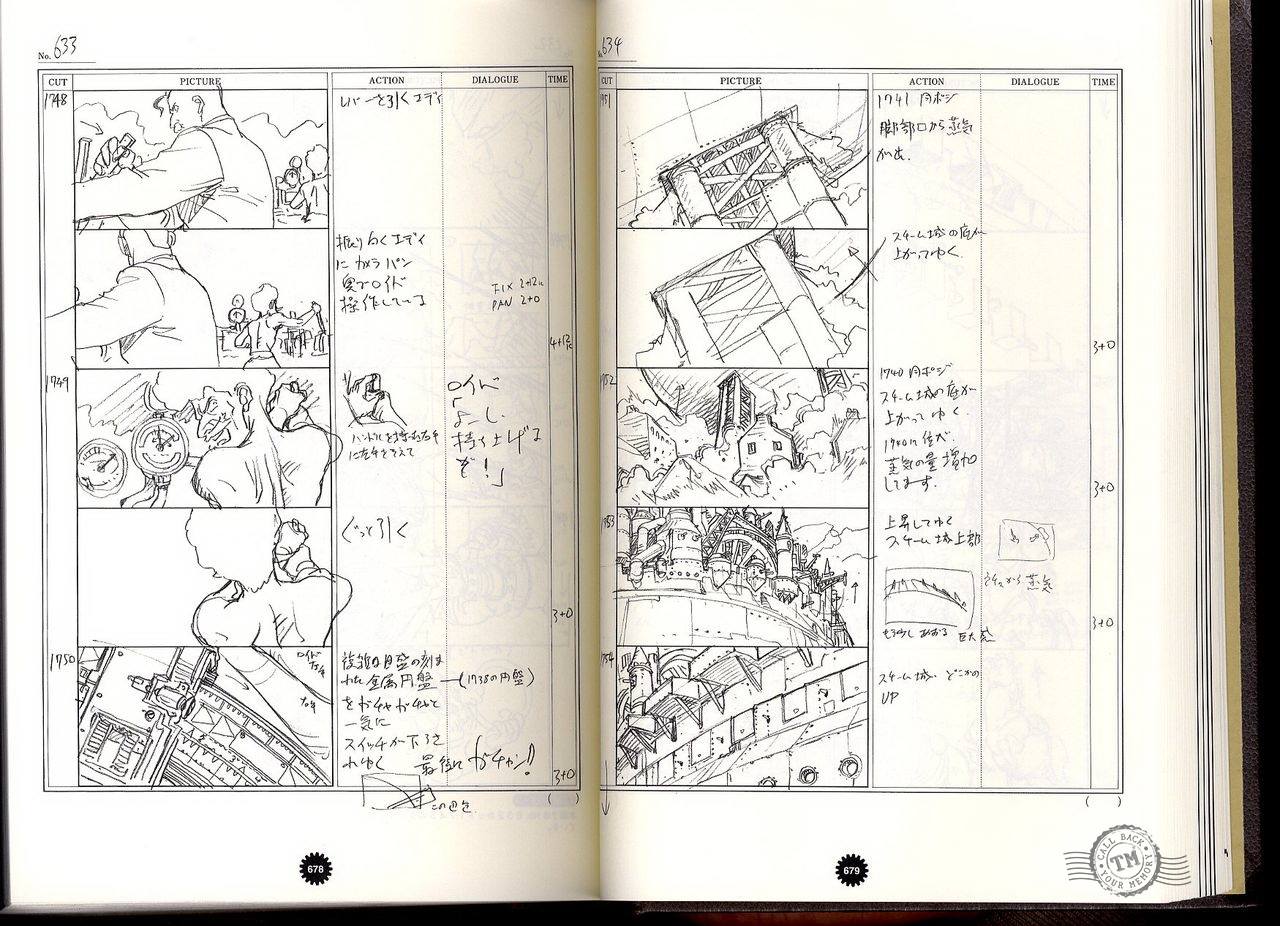 No. 633
CUT PICTURE ACTION DIALOGUE TIME
1748
レバーを引くエディ
振り向くエディ
にカメラパン
奥でロイド
操作している
FIX 2+12k
PAN 2+0
4+12k
1749
ハンドルを握る右手
に左手をそえて
ロイド
「よーし
持ち上げる
ぞ!」
ぐっと引く
3+0
1750
ロイド
れた金属円盤 (1738の円盤)
をガチャガチャと
一気に
スイッチが下ろさ
れゆく
最後にガチャン!!
3+0
( )
678
No. 634
CUT PICTURE ACTION DIALOGUE TIME
1741 同ポジ
脚部口から蒸気
が出
スチーム城の底が
上がってゆく
3+0
1740 同ポジ
スチーム城の底が
上がってゆく
蒸気の量増加
してます
3+0
上昇してゆく
スチーム城上部
から蒸気
3+0
スチーム城 どこかの
UP
( )
679
CALL BACK
TM
YOUR MEMORY